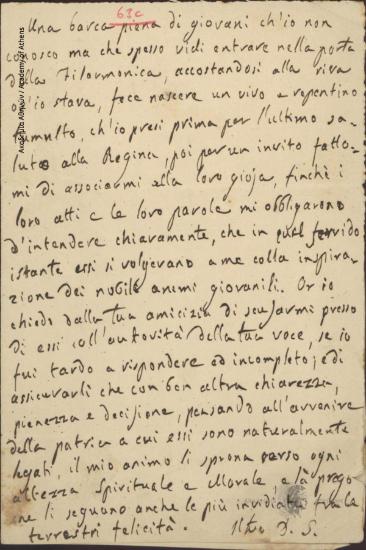 63c
Una barca piena di giovani ch'io non
conosco ma che spesso vidi entrare nella porta
della Filarmonica, accostandosi alla riva
ov'io stava, fece nascere un vivo e repentino
tumulto, ch'io presi prima per l'ultimo sa-
luto alla Regina, poi per un invito fatto-
mi di associarmi alla loro gioja, finchè i
loro atti e le loro parole mi obbligarono
d'intendere chiaramente, che in quel fervido
istante essi si volgevano a me colla inspira-
zione dei nobili animi giovanili. Or io
chiedo dalla tua amicizia di scusarmi presso
di essi coll'autorità della tua voce, se io
fui tardo a rispondere ed incompleto; e di
assicurarli che con ben altra chiarezza,
pienezza e decisione, pensando all'avvenire
della patria a cui essi sono naturalmente
legati, il mio animo li sprona verso ogni
altezza Spirituale e Morale, e là prego
ne li seguano anche le più invidiate tra le
terrestri felicità. Il tuo D. S.
Ακαδημία Αθηνών / Academy of Athens